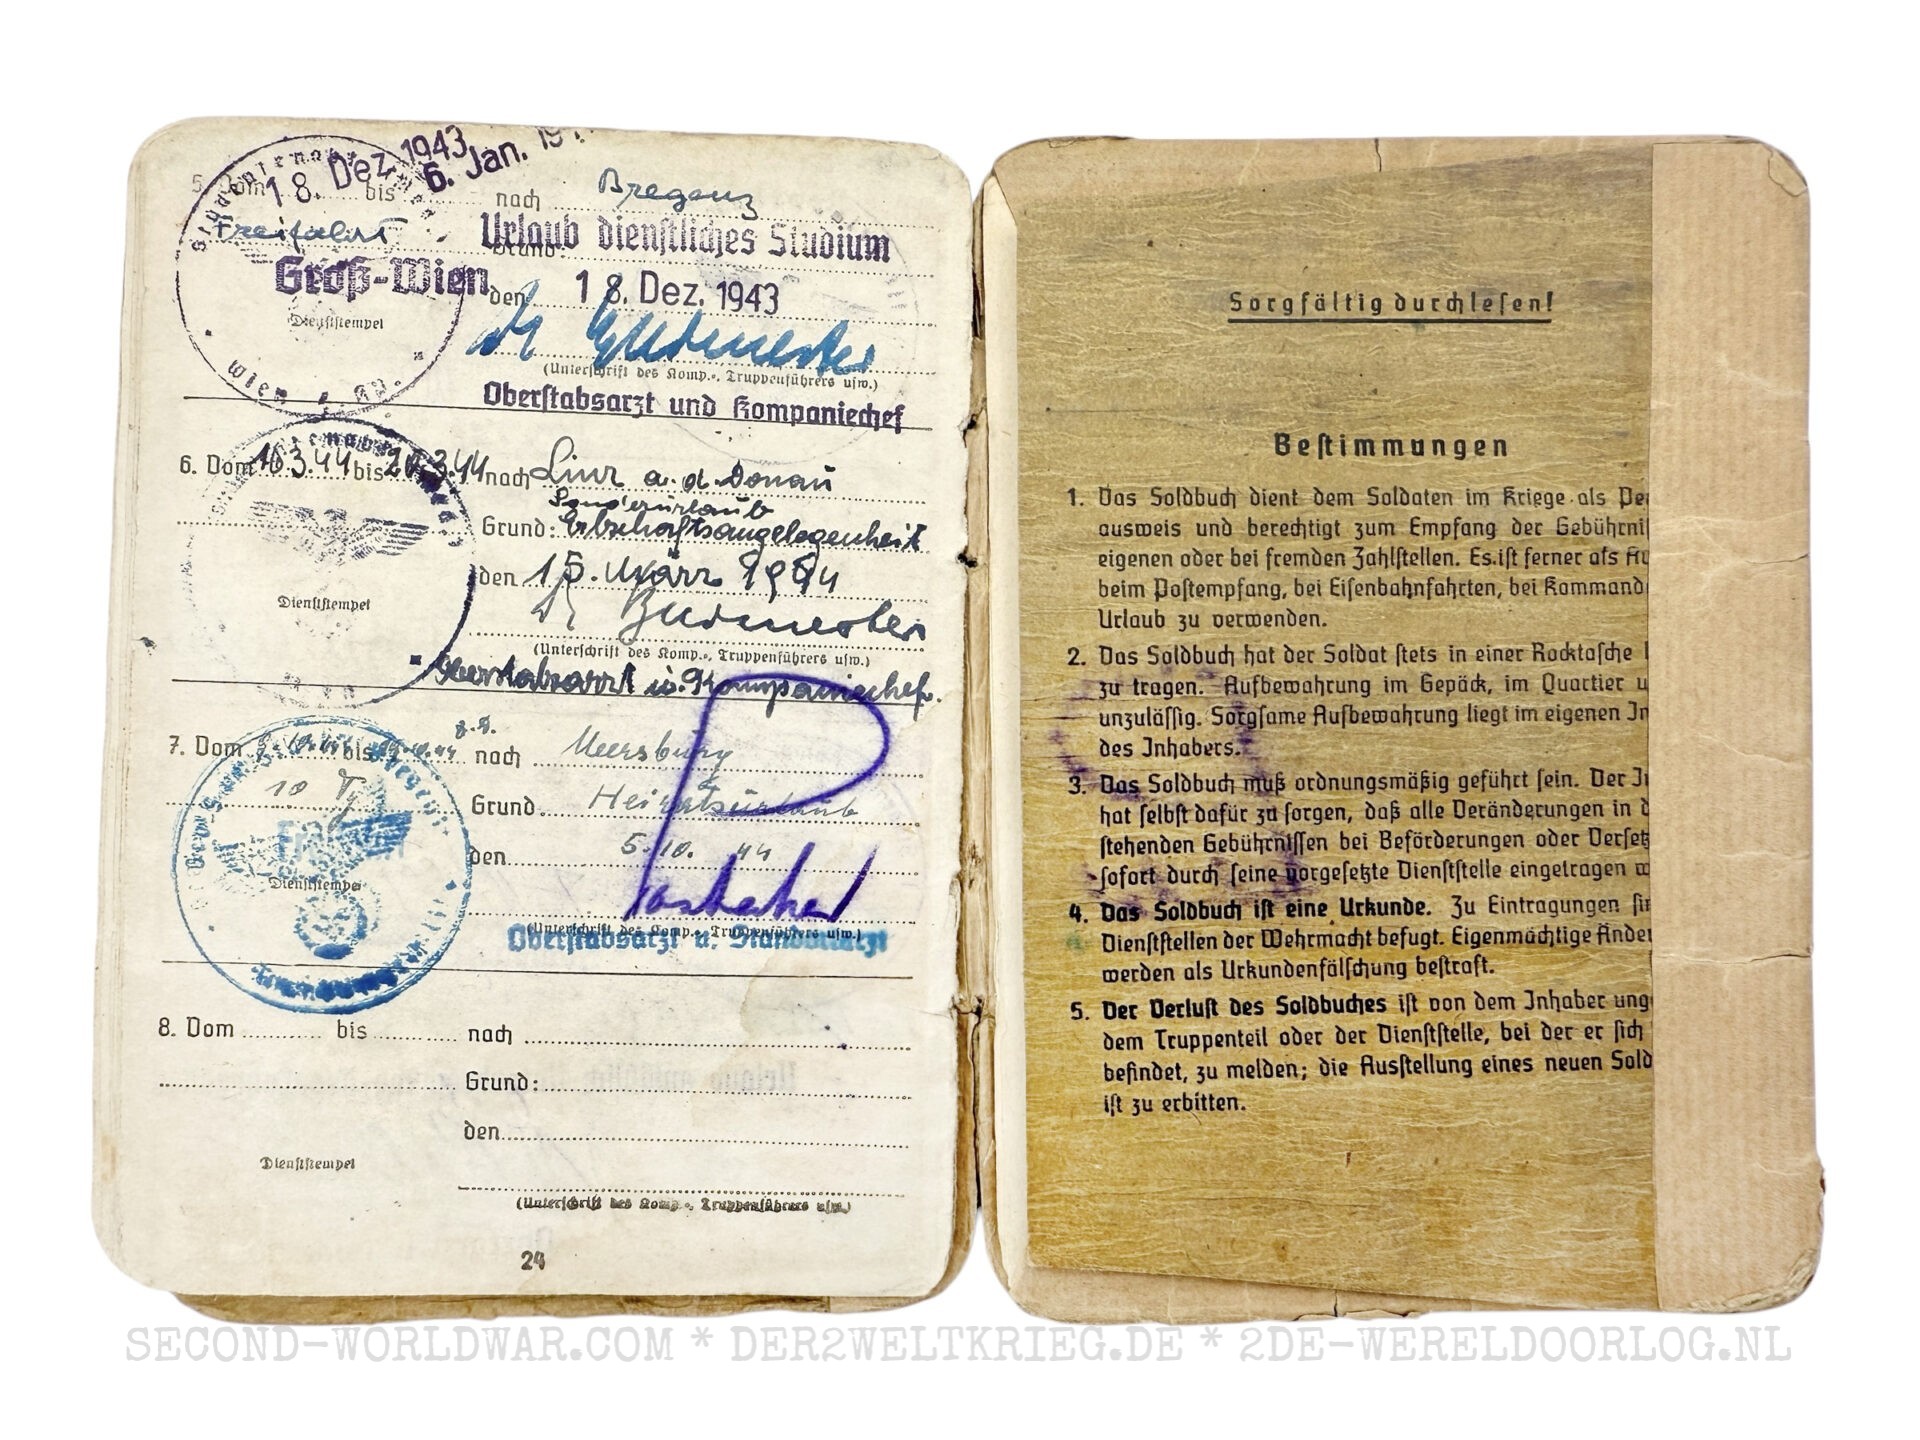 5. Vom 18. Dez. 1943 bis 6. Jan. 19 nach Bregenz
Freifahrt
Grund: Urlaub dienstliches Studium
Groß-Wien
den 18. Dez. 1943
Dienststempel
Dr
(Unterschrift des Komp.-, Truppenführers usw.)
Wien
Oberstabsarzt und Kompaniechef
6. Vom 16.3.44 bis 3.44 nach Linz a. d. Donau
Sonderurlaub
Grund: Erbschaftsangelegenheit
den 15. März 1944
Dienststempel
Dr Burmester
(Unterschrift des Komp.-, Truppenführers usw.)
Oberstabsarzt u. Kompaniechef.
7. Vom bis nach Meersburg
10 Tg
Grund Heiratsurlaub
den 5.10.44
Dienststempel
(Unterschrift des Komp.-, Truppenführers usw.)
Oberstabsarzt u. Standortarzt
8. Vom bis nach
Grund:
den
Dienststempel
(Unterschrift des Komp.-, Truppenführers usw.)
24
Sorgfältig durchlesen!
Bestimmungen
1. Das Soldbuch dient dem Soldaten im Kriege als Pe
ausweis und berechtigt zum Empfang der Gebührni
eigenen oder bei fremden Zahlstellen. Es ist ferner als Au
beim Postempfang, bei Eisenbahnfahrten, bei Kommand
Urlaub zu verwenden.
2. Das Soldbuch hat der Soldat stets in einer Rocktasche
zu tragen. Aufbewahrung im Gepäck, im Quartier u
unzulässig. Sorgsame Aufbewahrung liegt im eigenen In
des Inhabers.
3. Das Soldbuch muß ordnungsmäßig geführt sein. Der I
hat selbst dafür zu sorgen, daß alle Veränderungen in d
stehenden Gebührnissen bei Beförderungen oder Verset
sofort durch seine vorgesetzte Dienststelle eingetragen w
4. Das Soldbuch ist eine Urkunde. Zu Eintragungen sin
Dienststellen der Wehrmacht befugt. Eigenmächtige Änder
werden als Urkundenfälschung bestraft.
5. Der Verlust des Soldbuches ist von dem Inhaber ung
dem Truppenteil oder der Dienststelle, bei der er sich
befindet, zu melden; die Ausstellung eines neuen Sold
ist zu erbitten.
SECOND-WORLDWAR.COM * DER2WELTKRIEG.DE * 2DE-WERELDOORLOG.NL